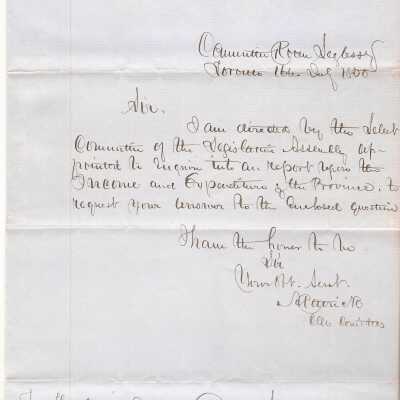 Committee Room Leg: Assy
Toronto 16th July 1850
Sir.
I am directed by the Select
Committee of the Legislative Assembly ap-
pointed to inquire into and report upon the
Income and Expenditure of the Province, to
request your answer to the enclosed question
I have the honor to be
Sir
Your Obt. Servt.